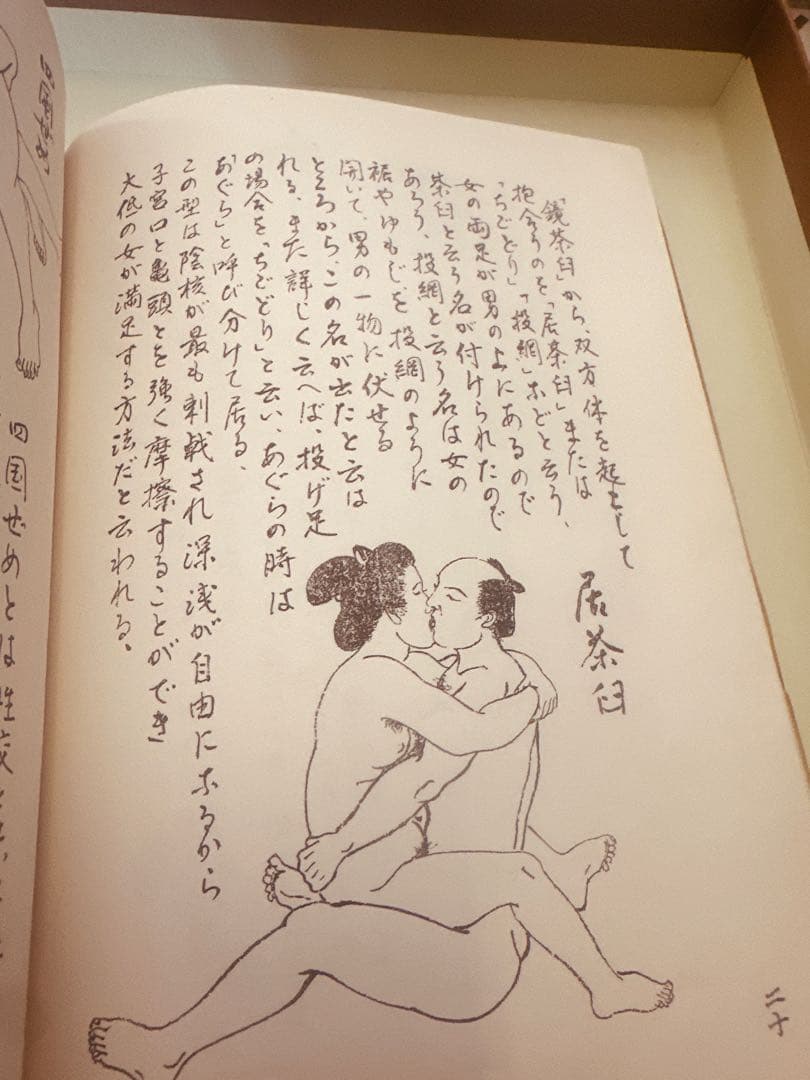 居茶臼
「鏡茶臼」から、双方体を起として
抱合うのを「居茶臼」または
「ちごどり」「投網」などと云う、
女の両足が男の上にあるので
茶臼と云う名が付けられたので
あろう、投網と云う名は女の
裾やゆもじを投網のように
開いて、男の一物に伏せる
ところから、この名が出たと云は
れる、また詳しく云へば、投げ足
の場合を「ちごどり」と云い、あぐらの時は
「あぐら」と呼び分けて居る、
この型は陰核が最も刺戟され深浅が自由になるから
子宮口と亀頭とを強く摩擦することができ
大低の女が満足する方法だと云われる、
二十
四国ぜめとは性交